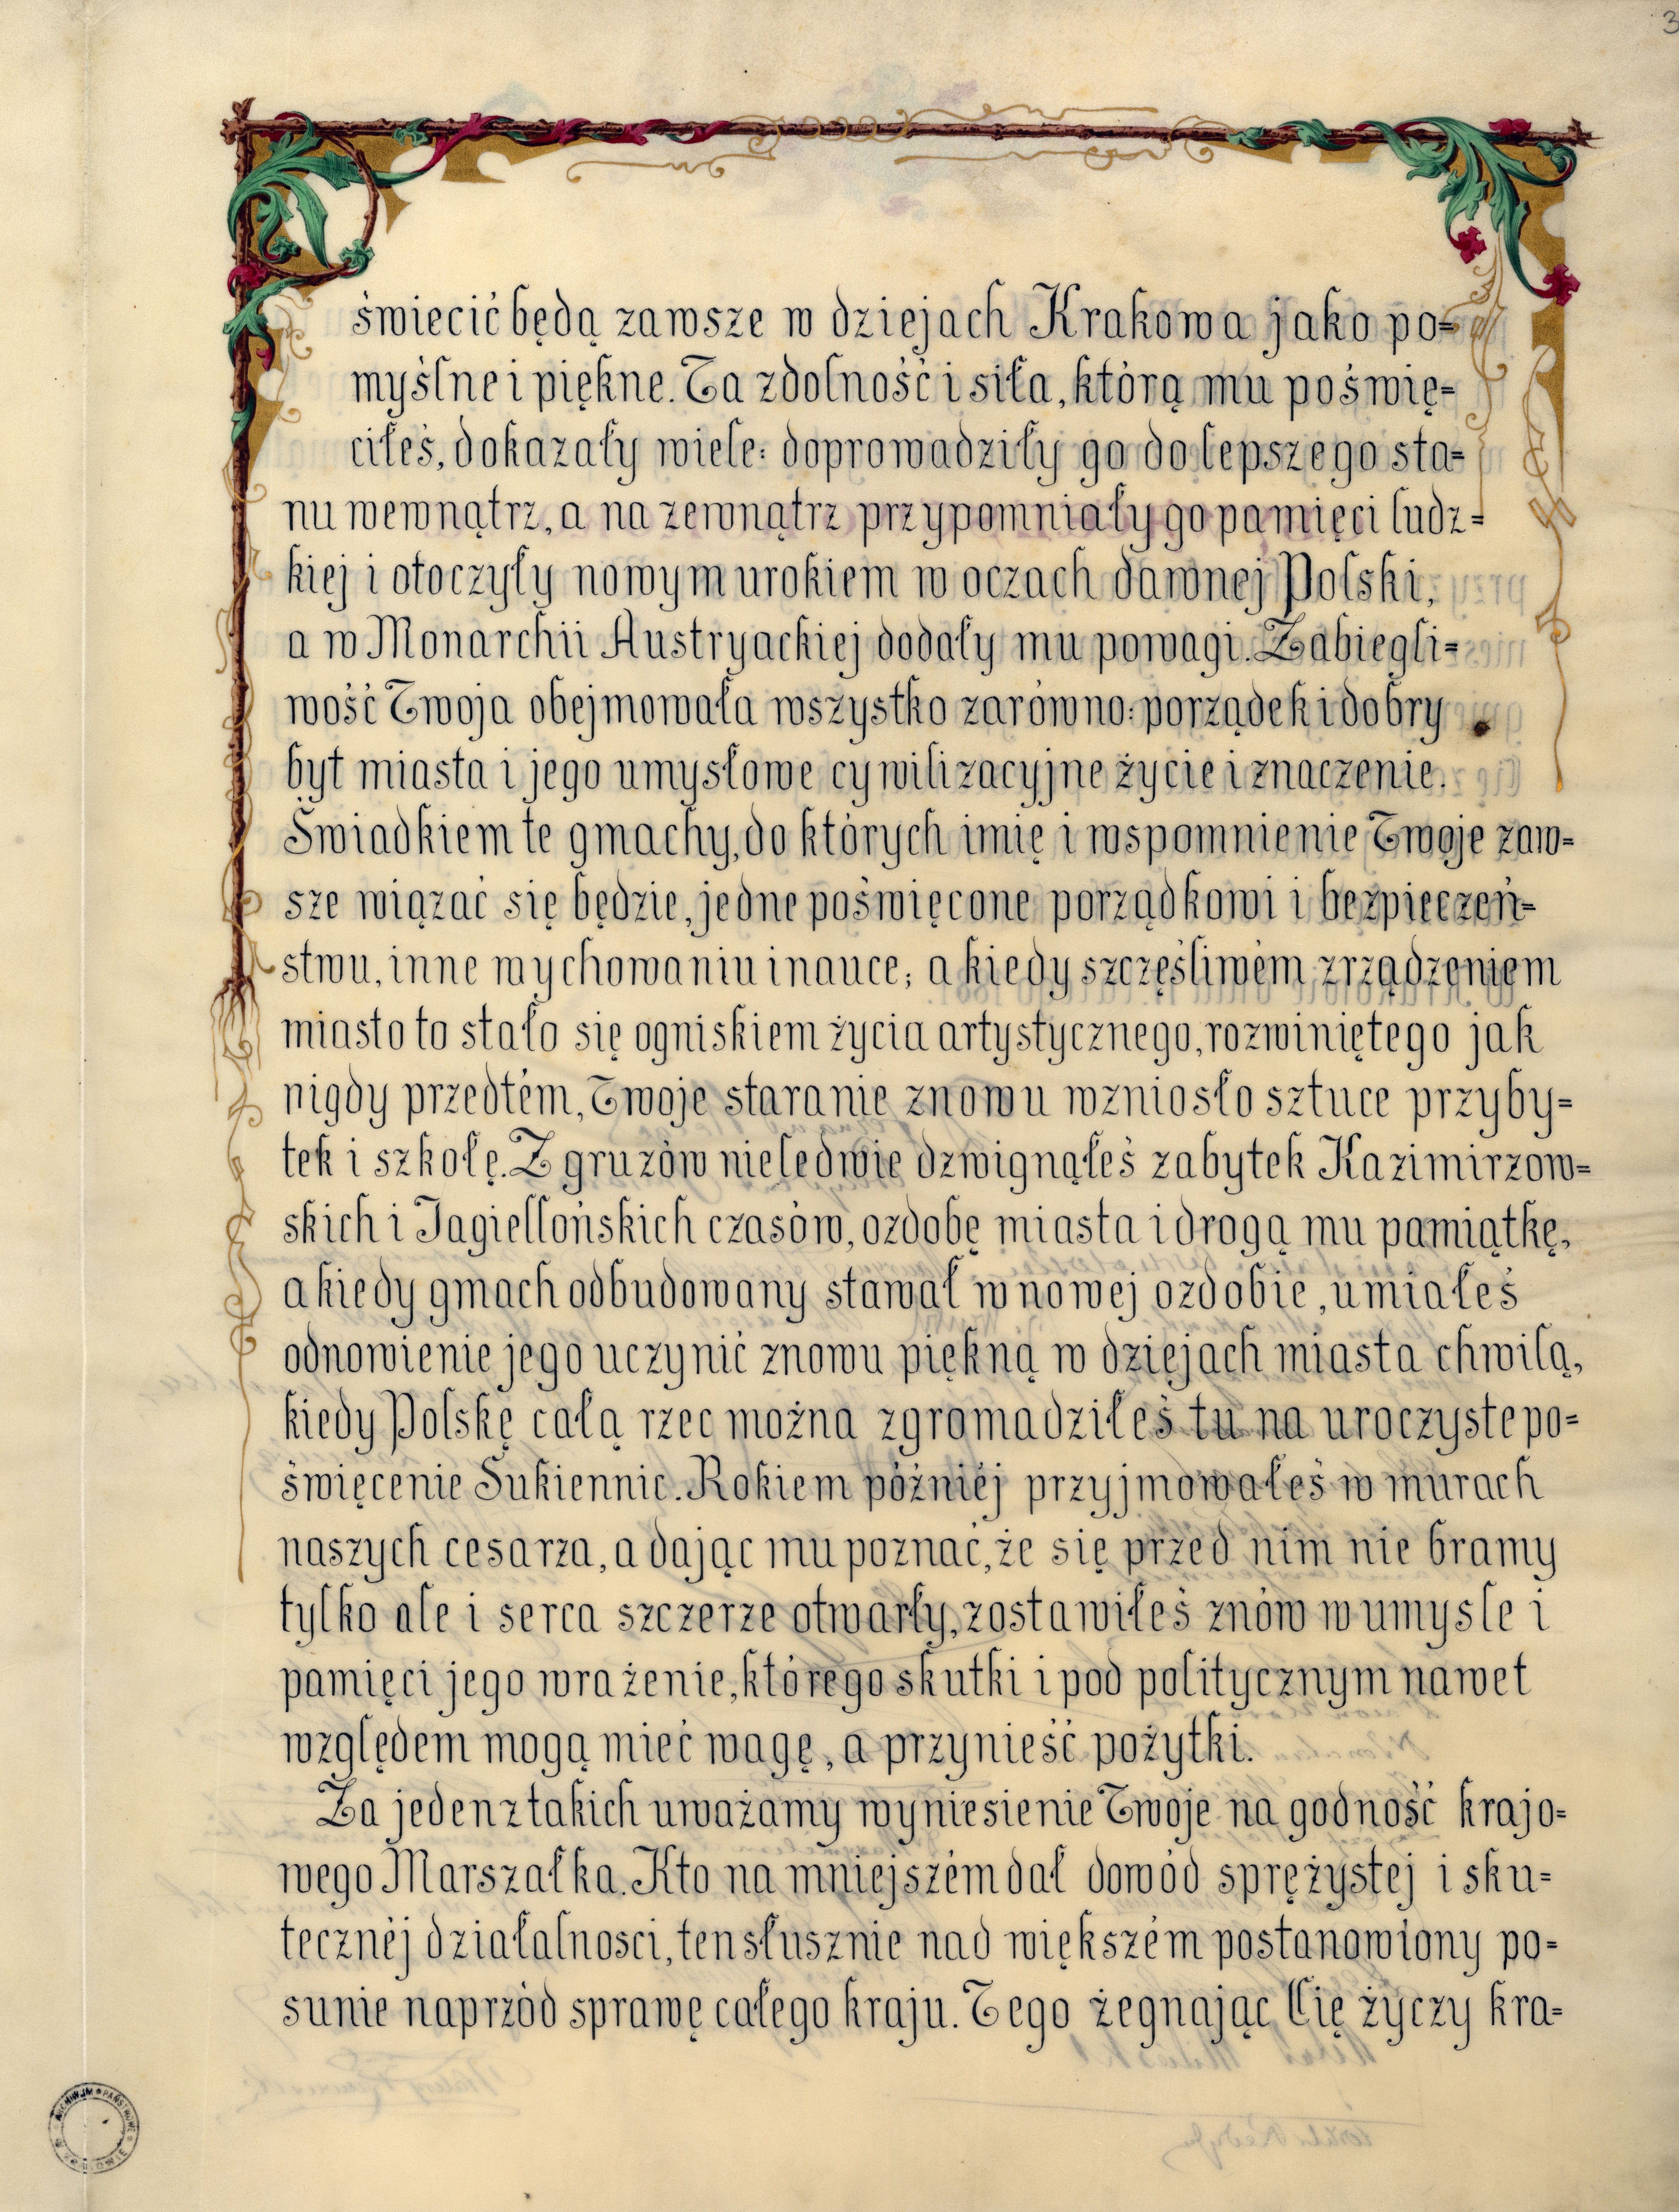 3
świecić będą zawsze w dziejach Krakowa jako po=
myślne i piękne. Ta zdolność i siła, którą mu poświę=
ciłeś, dokazały wiele: doprowadziły go do lepszego sta=
nu wewnątrz, a na zewnątrz przypomniały go pamięci ludz=
kiej i otoczyły nowym urokiem w oczach dawnej Polski,
a w Monarchii Austryackiej dodały mu powagi. Zabiegli=
wość Twoja obejmowała wszystko zarówno: porządek i dobry
byt miasta i jego umysłowe cywilizacyjne życie i znaczenie.
Świadkiem te gmachy, do których imię i wspomnienie Twoje zaw=
sze wiązać się będzie, jedne poświęcone porządkowi i bezpieczeń=
stwu, inne wychowaniu i nauce; a kiedy szczęśliwém zrządzeniem
miasto to stało się ogniskiem życia artystycznego, rozwiniętego jak
nigdy przedtém, Twoje staranie znowu wzniosło sztuce przyby=
tek i szkołę. Z gruzów nieledwie dzwignąłeś zabytek Kazimirzow=
skich i Jagiellońskich czasów, ozdobę miasta i drogą mu pamiątkę,
a kiedy gmach odbudowany stawał w nowej ozdobie, umiałeś
odnowienie jego uczynić znowu piękną w dziejach miasta chwilą,
kiedy Polskę całą rzec można zgromadziłeś tu na uroczyste po=
święcenie Sukiennic. Rokiem późniéj przyjmowałeś w murach
naszych cesarza, a dając mu poznać, że się przed nim nie bramy
tylko ale i serca szczerze otwarły, zostawiłeś znów w umysle i
pamięci jego wrażenie, którego skutki i pod politycznym nawet
względem mogą mieć wagę, a przynieść pożytki.
Za jeden z takich uważamy wyniesienie Twoje na godność krajo=
wego Marszałka. Kto na mniejszém dał dowód sprężystej i sku=
tecznéj działalnosci, ten słusznie nad większém postanowiony po=
sunie naprzód sprawę całego kraju. Tego żegnając Cię życzy kra=